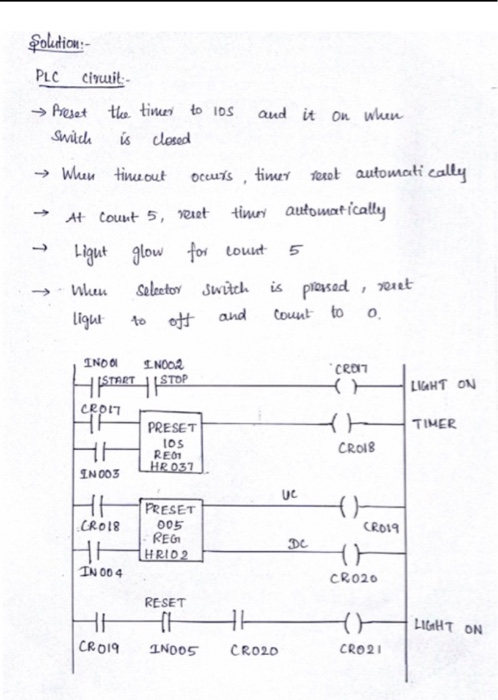 Solution:-
PLC circuit:-
→ Preset the timer to 10S and it on when
switch is closed
→ When timeout occurs, timer reset automatically
→ At count 5, reset timer automatically
→ Light glow for count 5
→ When selector switch is pressed, reset
light to off and count to 0.
IN001 IN002 CR017
START STOP LIGHT ON
CR017
PRESET TIMER
10S CR018
REG
HR037
IN003
UC
PRESET
CR018 005 CR019
REG DC
HR102
IN004 CR020
RESET
LIGHT ON
CR019 IN005 CR020 CR021